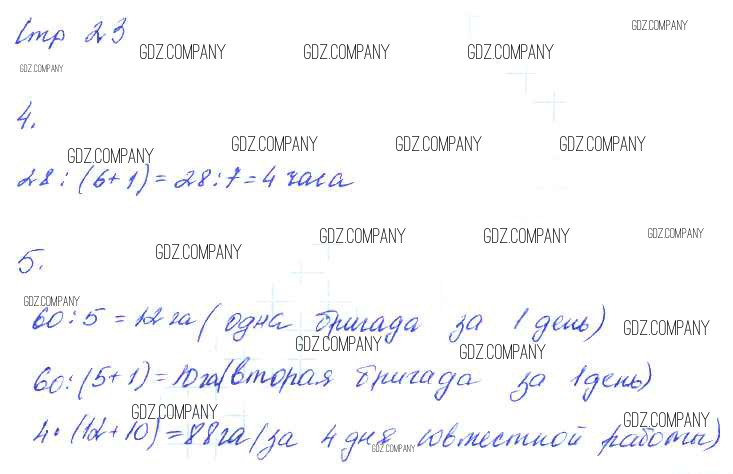 Стр 23
GDZ.COMPANY
GDZ.COMPANY GDZ.COMPANY GDZ.COMPANY
GDZ.COMPANY
4.
GDZ.COMPANY GDZ.COMPANY GDZ.COMPANY
GDZ.COMPANY
28 : (6+1) = 28 : 7 = 4 часа
GDZ.COMPANY GDZ.COMPANY GDZ.COMPANY
GDZ.COMPANY
5.
GDZ.COMPANY
60 : 5 = 12 га ( одна бригада за 1 день)
GDZ.COMPANY
GDZ.COMPANY GDZ.COMPANY
60 : (5+1) = 10 га (вторая бригада за 1 день)
GDZ.COMPANY GDZ.COMPANY
4 • (12+10) = 88 га (за 4 дня совместной работы)
GDZ.COMPANY